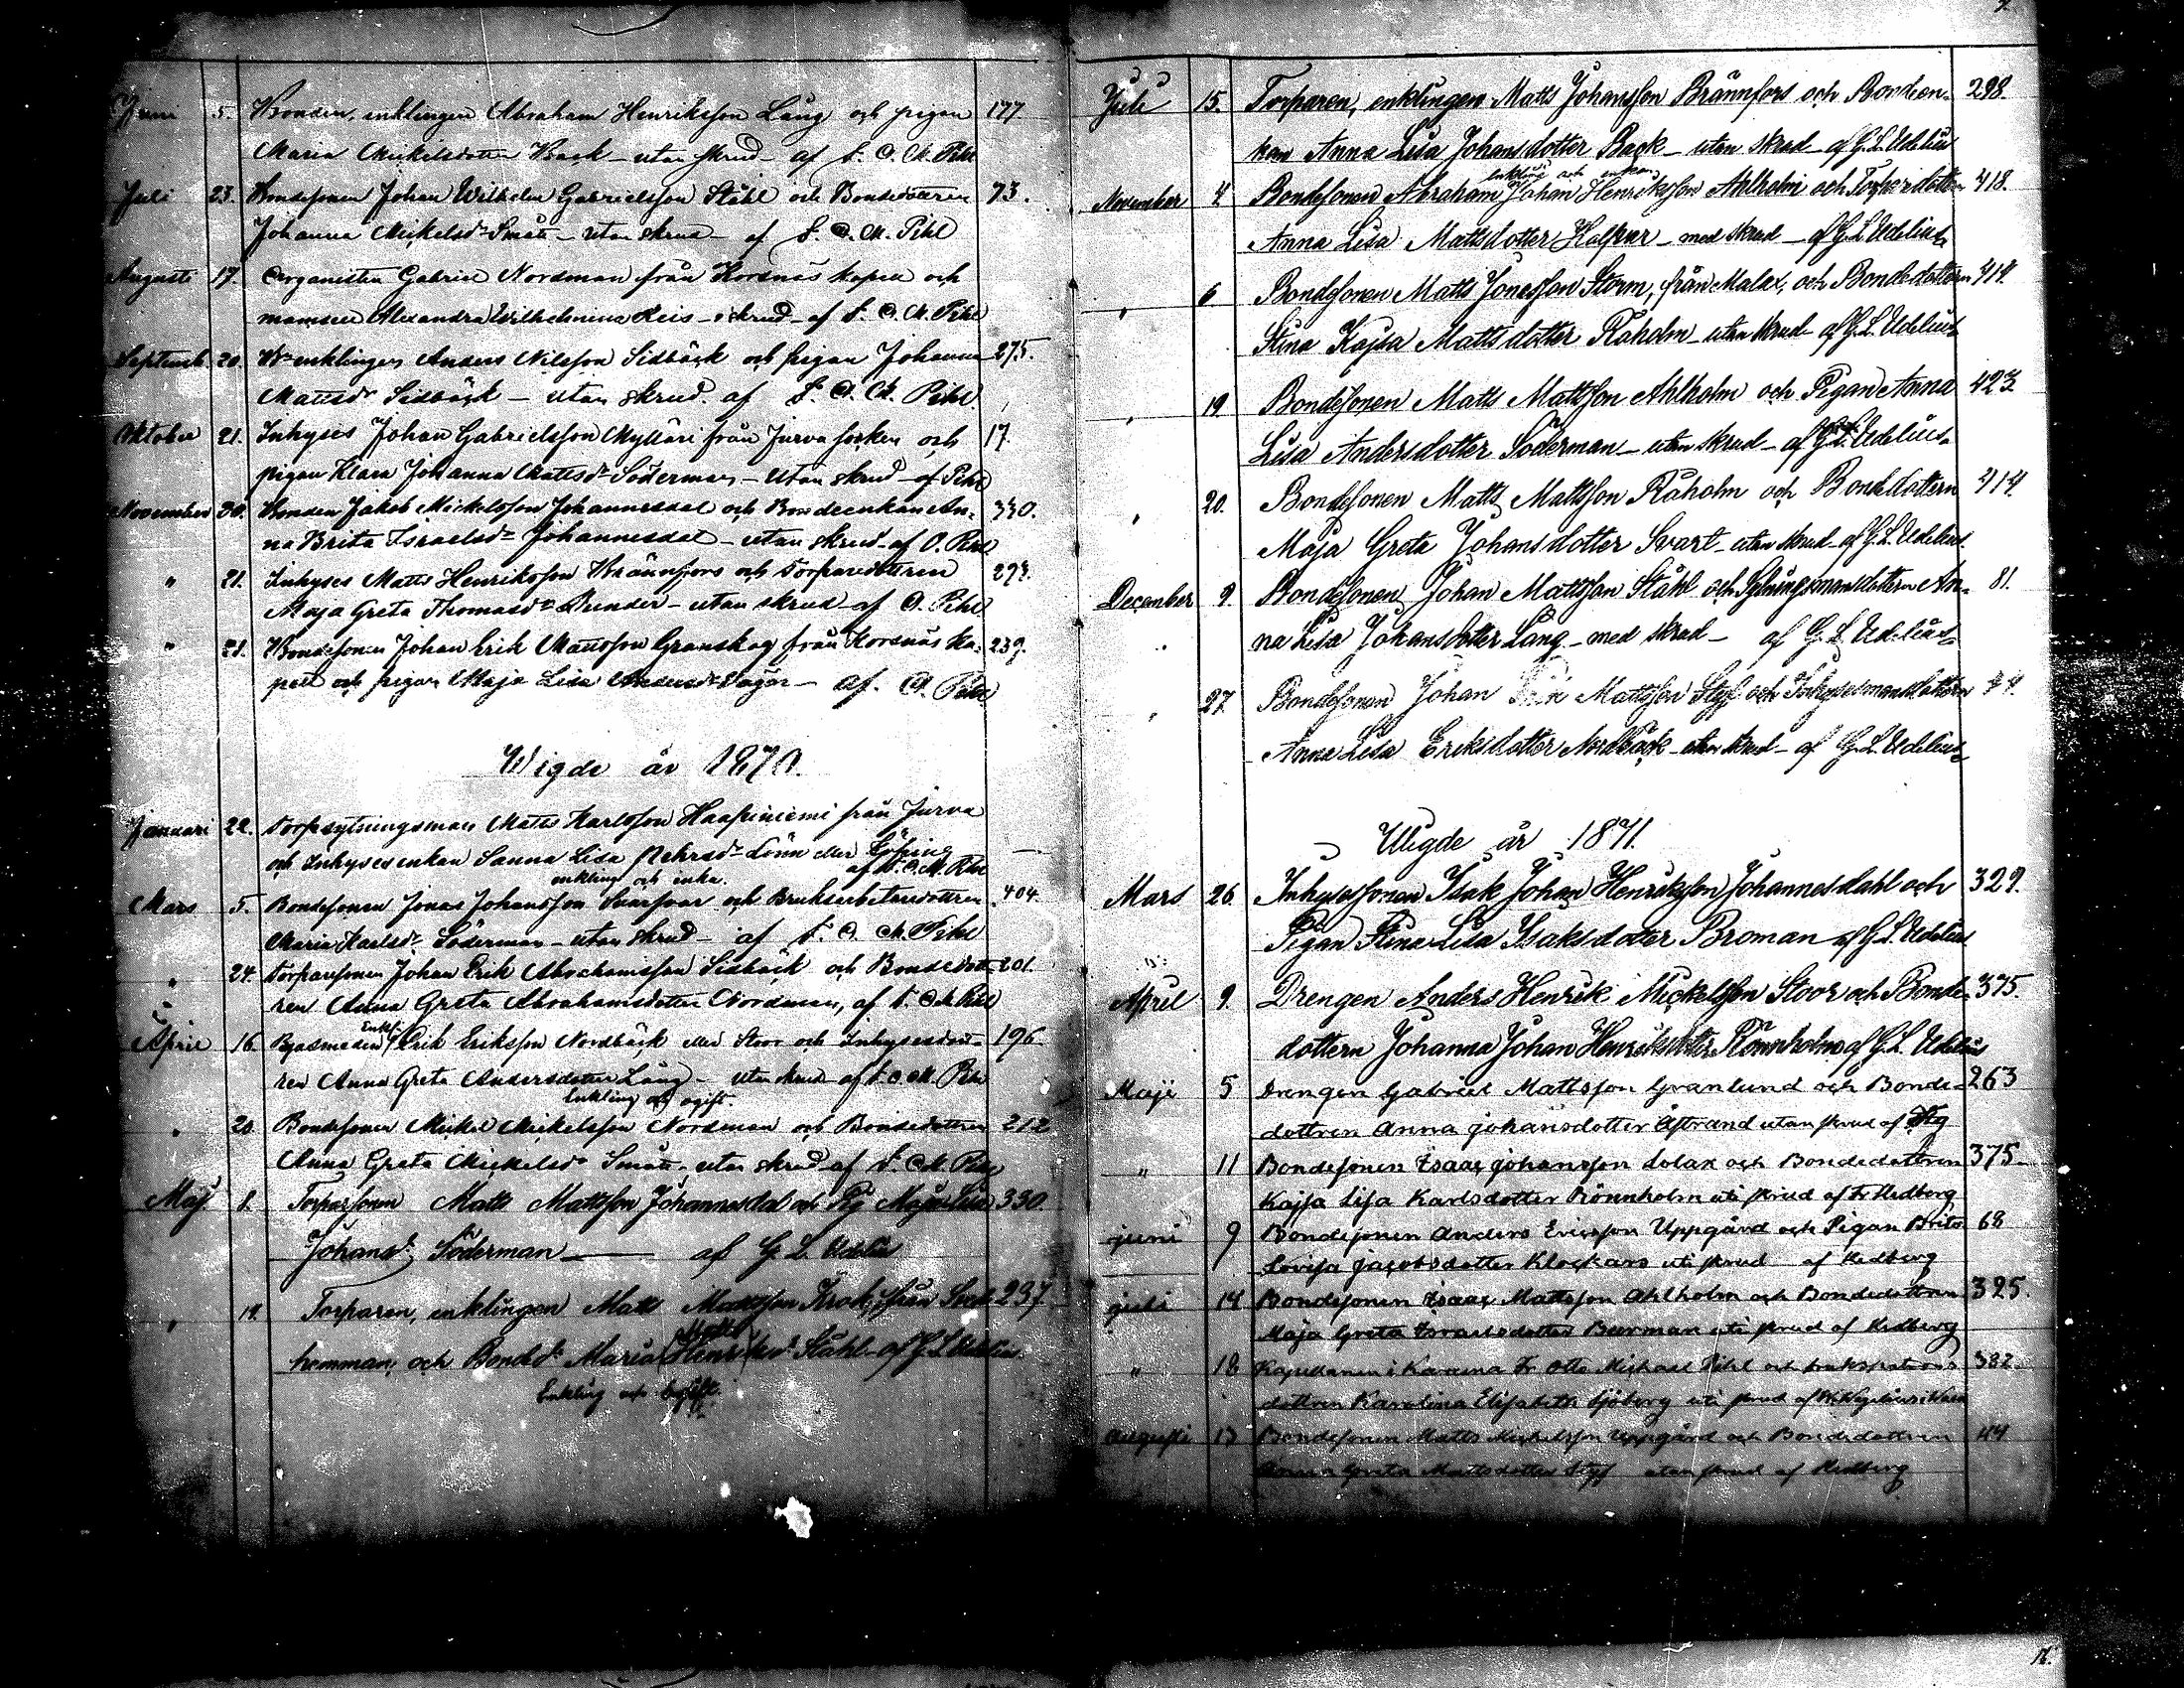 Juni 5. Bonden, enklingen Abraham Henriksson Lång och pigan 177.
Maria Mickelsdotter Back – utan skrud – af O. M. Pihl
Juli 23. Bondesonen Johan Wilhelm Gabrielsson Ståhl och Bondedottren 73.
Johanna Mickelsdr Småts – utan skrud – af O. M. Pihl
Augusti 17. Organisten Gabriel Nordman från Korsnäs kapell och
mamsell Alexandra Wilhelmina Reis – i skrud – af O. M. Pihl
Septemb. 20. enklingen Anders Nilsson Sidbäck och pigan Johanna 275.
Mattsdr Sidbäck – utan skrud. af O. M. Pihl.
Oktober 21. Inhyses Johan Gabrielsson Mylläri från Jurva socken och 17.
pigan Klara Johanna Mattsdr Söderman – utan skrud – af Pihl
November 30. Bonden Jakob Mickelsson Johannesdal och Bondeenkan An- 330.
na Brita Israelsdr Johannesdal – utan skrud – af O. Pihl
" 21. Inhyses Matts Henriksson Brännfors och Torparedottren
Maja Greta Thomasdr Dunder – utan skrud – af O. Pihl
" 21. Bondesonen Johan Erik Mattsson Granskog från Korsnäs ka- 239.
pell och pigan Maja Lisa Andersdr – af. O. Pihl
Wigde år 1870.
Januari 22. Torpsytningsman Matts Karlsson Haapiniemi från Jurva
och Inhysesenkan Sanna Lisa Pehrsdr Lönn eller Löfving —
enkling och enka. af O. M. Pihl
Mars 5. Bondesonen Jonas Johansson och Bruksarbetaredottren 404.
Maria Karlsdr Söderman – utan skrud – af O. M. Pihl
" 24. Torparesonen Johan Erik Abrahamsson Sidbäck och Bondedott- 201.
ren Anna Greta Abrahamsdotter Nordman, af O. M. Pihl
Enkl.
April 16. Erik Eriksson Nordbäck eller Stoor och Inhysesdott- 196.
ren Anna Greta Andersdotter Lång – utan skrud – af O. M. Pihl
Enkling och ogift.
" 20 Bondesonen Mickel Mickelsson Nordman och Bondedottren 212
Anna Greta Mickelsdr Småts, utan skrud af O. M. Pihl
Maj. 8. Torparsonen Matts Mattsson Johannesdal och Pig. Maja Lisa 330.
Johansdr Söderman — af G. L. Udelius
" Torparen, enklingen Matts Mattsson från 237.
Matts
hemman, och Bonded. Maria Ståhl – af G L Udelius.
Enkling och ogift.
Juli 15. Torparen, enklingen Matts Johansson Brännfors och Bondeen- 298.
kan Anna Lisa Johansdotter Back – utan skrud – af G. L. Udelius
enkling och enkan
November 4 Bondesonen Abraham Johan Henriksson Ahlholm och Torparedotter 418.
Anna Lisa Mattsdotter – med skrud – af G. L. Udelius
" 6 Bondesonen Matts Jonasson Storm, från Malax, och Bondedottern 414.
Stina Kajsa Mattsdotter Råholm – utan skrud – af G. L. Udelius
" 19 Bondesonen Matts Mattsson Ahlholm och Pigan Anna 423.
Lisa Andersdotter Söderman – utan skrud – af G. L. Udelius
" 20. Bondesonen Matts Mattsson Råholm och Bondedottern 414.
Maja Greta Johansdotter Svart – utan skrud – af G. L. Udelius.
December 9 Bondesonen Johan Mattsson Ståhl och Sytningsmansdottern An- 81.
na Lisa Johansdotter Lång – med skrud – af G. L. Udelius
" 27. Bondesonen Johan Erik Mattsson Styf och Inhysesmansdottern
Anna Lisa Eriksdotter Nordbäck – utan skrud – af G. L. Udelius
Wigde år 1871.
Mars 26. Inhysessonen Isak Johan Henriksson Johannesdahl och 329.
Pigan Stina Lisa Isaksdotter Broman af G. L. Udelius
April 9. Drengen Anders Henrik Mickelsson Stoor och Bonde- 375.
dottern Johanna Johan Henriksdotter Rönnholm af G. L. Udelius
Maji 5 Drengen Gabriel Mattsson Granlund och Bonde- 263
dottren Anna Johansdotter Åstrand utan skrud af
" 11 Bondesonen Isaac Johansson Solax och Bondedottren 375
Kajsa Lisa Karlsdotter Rönnholm uti skrud af Hedberg
Juni 9 Bondesonen Anders Ericsson Uppgård och Pigan Brita 68
Lovisa Jacobsdotter Klockars uti skrud af Hedberg
Juli 14 Bondesonen Isaac Mattsson Ahlholm och Bondedottren 395.
Maja Greta Israelsdotter Burman uti skrud af Hedberg
" 18 Kapellanen i Otto Michael Pihl och 382
dottren Karolina Elisabeth Sjöberg uti skrud af
Augusti 13 Bondesonen Matts Michelsson Uppgård och Bondedottren 44
Greta Mattsdotter Styf utan skrud af Hedberg